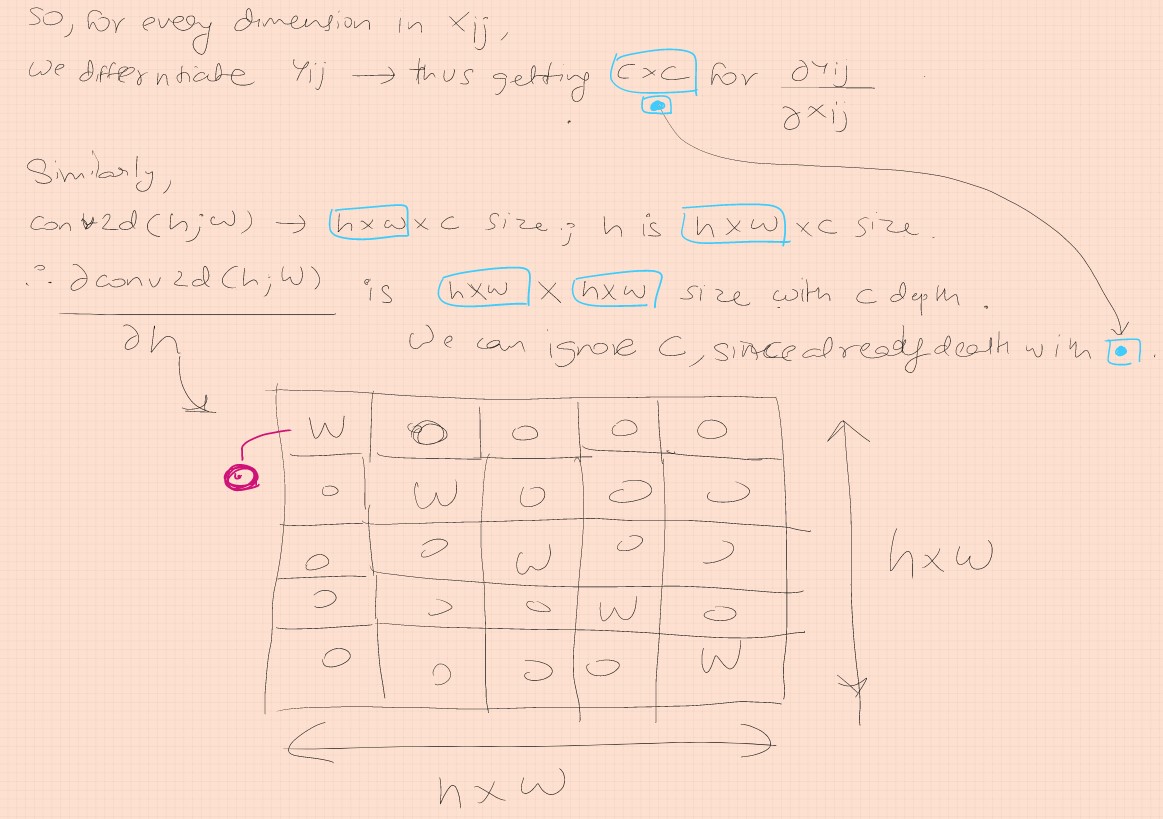 So, for every dimension in xij,
we differntiate yij → thus getting c×c for ∂yij/∂xij
Similarly,
conv2d(h;W) → h×w×c size; h is h×w×c size.
∴ ∂conv2d(h;W)/∂h is h×w × h×w size with c depth.
We can ignore C, since already dealth with .
W 0 0 0 0
0 W 0 0 0
0 0 W 0 0
0 0 0 W 0
0 0 0 0 W
h×w
h×w